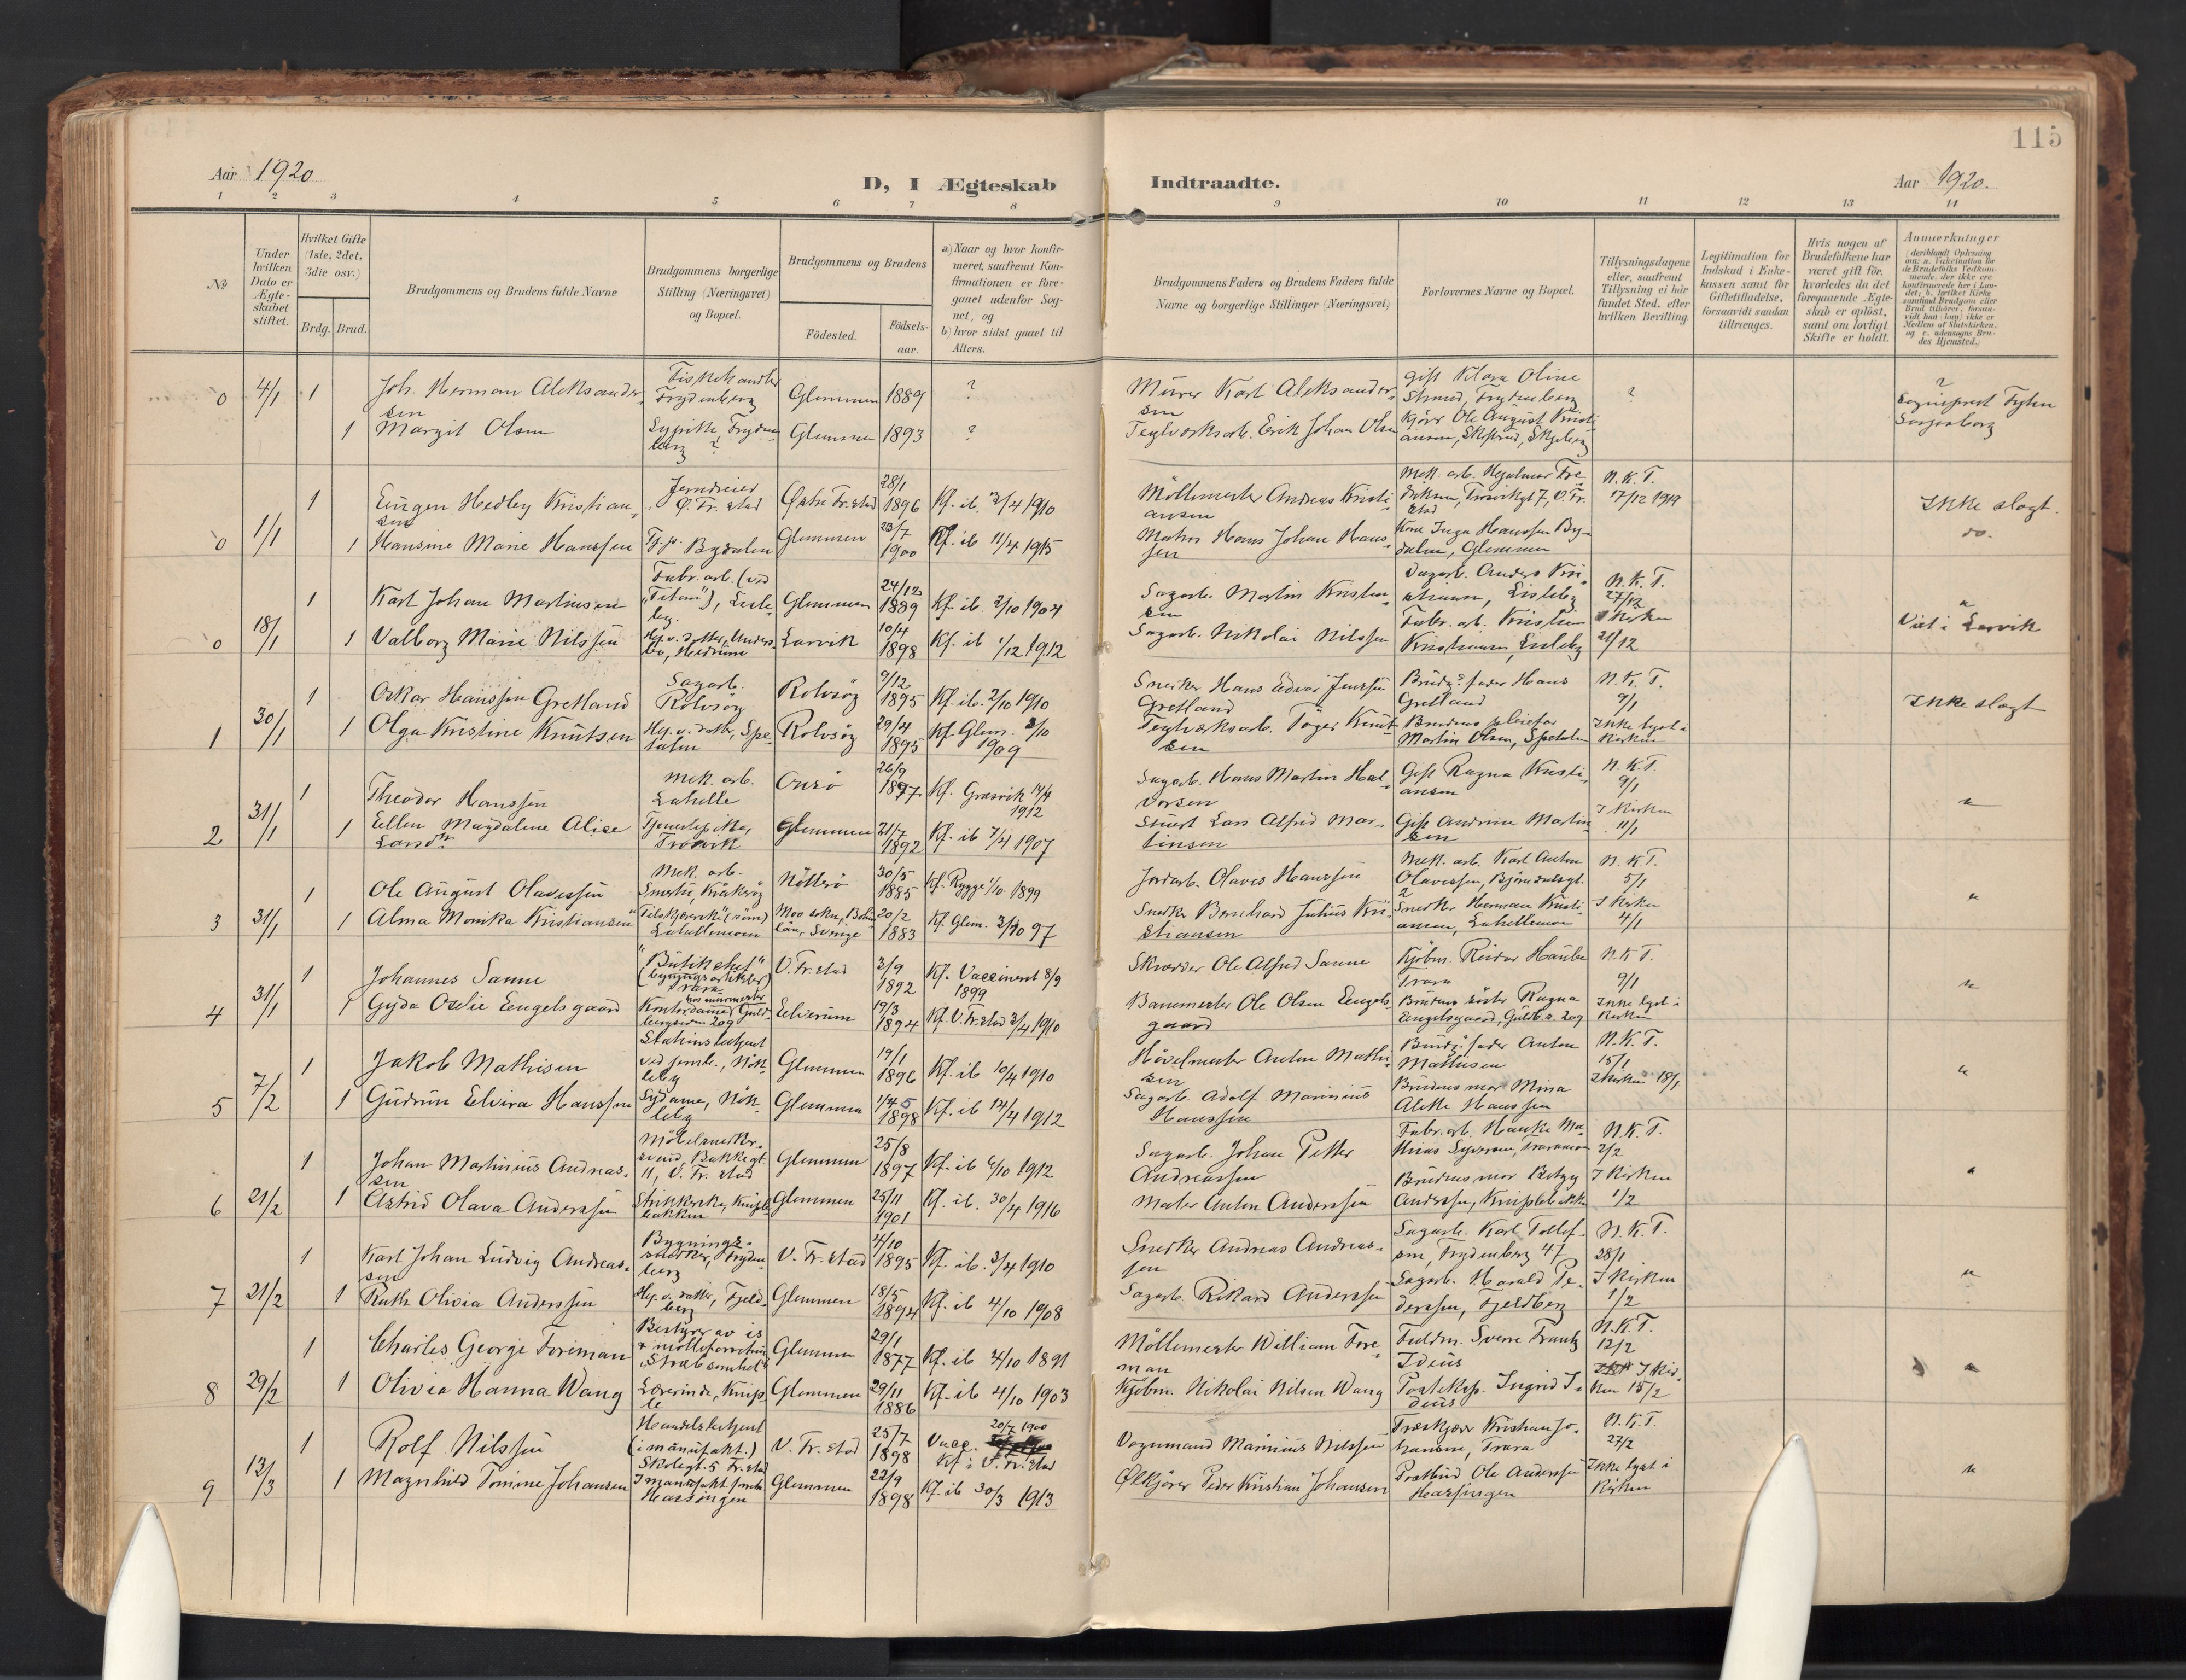 115
Aar 1920
D, I Ægteskab
Indtraadte.
Aar 1920.
1 2 3 4 5 6 7 8 9 10 11 12 13 14
No
Under hvilken Dato er Ægteskabet stiftet.
Hvilket Gifte (1ste, 2det, 3die osv.)
Brdg. Brud.
Brudgommens og Brudens fulde Navne
Brudgommens borgerlige Stilling (Næringsvei) og Bopæl.
Brudgommens og Brudens
Födested.
Födsels-aar.
a) Naar og hvor konfirmeret, saafremt Konfirmationen er foregaaet udenfor Sognet, og
b) hvor sidst gaaet til Alters.
Brudgommens Faders og Brudens Faders fulde Navne og borgerlige Stillinger (Næringsvei)
Forlovernes Navne og Bopæl.
Tillysningsdagene eller, saafremt Tillysning ei har fundet Sted, efter hvilken Bevilling.
Legitimation for Indskud i Enkekassen samt for Giftetilladelse, forsaavidt saadan tiltrænges.
Hvis nogen af Brudefolkene har været gift för, hvorledes da det foregaaende Ægteskab er oplöst, samt om lovligt Skifte er holdt.
Anmerkninger
0 4/1 1 Joh. Herman Aleksandersen Fiskehandler Frydenberg Glemmen 1889 ? Murer Karl Aleksandersen Gift Klara Oline Strand, Frydenberg ? ? Sogneprest Fyhn Sarpsborg
1 Margit Olsen Sypike, Frydenberg ? Glemmen 1893 ? Teglverksarb. Erik Johan Olsen Kjörer Ole August Kristiansen, Skjeberg
0 1/1 1 Eugen Hedley Kristiansen Jerndreier Ö. Fr.stad Östre Fr.stad 28/1 1896 Kf. ib. 3/4 1910 Möllemester Andreas Kristiansen Mek. arb. Hjalmar Fredriksen, V. Fr.stad N. K. T. 17/12 1919 Ikke slegt.
1 Hansine Marie Hanssen Bydalen Glemmen 23/7 1900 Kf. ib 11/4 1915 Matros Hans Johan Hanssen Kone Inga Hanssen Bydalen, Glemmen do.
0 18/1 1 Karl Johan Martinsen Fabr. arb. (ved "Titani"), Lisleby. Glemmen 24/12 1889 Kf. ib. 2/10 1904 Sagarb. Martin Kristensen Dagarb. Anders Kristiansen, Lisleby N. K. T. 27/12 "
1 Valborg Marie Nilssen Hj. v. datter, Hedrum Larvik 10/4 1898 Kf. ib 1/12 1912 Sagarb. Nikolai Nilssen Fabr. arb. Kristian Kristiansen, Lisleby I Kirken 21/12 Viet i Larvik
1 30/1 1 Oskar Hanssen Gretland Sagarb. Rolvsöy Rolvsöy 9/12 1895 Kf. ib. 2/10 1910 Snekker Hans Edvar Jenssen Gretland Brudg.s fader Hans Gretland N. K. T. 9/1 Ikke slegt
1 Olga Kristine Knutsen Hj. v. datter, Spetalen Rolvsöy 29/4 1895 Kf. Glem. 3/10 1909 Teglverksarb. Töger Knutsen Brudens pleiefar Martin Olsen, Spetalen Ikke lyst i Kirken
2 31/1 1 Theodor Hanssen Mek. arb. Lahelle Onsö 26/9 1897 Kf. Græsvik 14/4 1912 Sagarb. Hans Martin Halvorsen Gift Ragna Kristiansen N. K. T. 9/1 "
1 Ellen Magdalene Alise Larsen Tjenestepike, Trosvik Glemmen 21/7 1892 Kf. ib 7/4 1907 Stuert Lars Alfred Martinsen Gift Andrine Martinsen I Kirken 11/1
3 31/1 1 Ole August Olavessen Mek. arb. Smertu, Kråkeröy Nötterö 30/5 1885 Kf. Rygge 1/10 1899 Jordarb. Olaves Hanssen Mek. arb. Karl Anton Olavessen, N. K. T. 5/1 "
1 Alma Monika Kristiansen Lahellemoen Moo sokn, Bohuslän, Sverige 20/2 1883 Kf. Glem. 3/10 97 Snekker Bernhard Julius Kristiansen Snekker Herman Kristiansen, Lahellemoen I Kirken 4/1
4 31/1 1 Johannes Sanne "Butikchef" Trara V. Fr.stad 3/9 1892 Kf. Vaccineret 8/9 1899 Skrædder Ole Alfred Sanne Kjöbm. Reidar Trara N. K. T. 9/1 "
1 Gyda Oselie Eengelsgaard Kontordame, Guldbergsiden 209 Elverum 19/3 1894 Kf. V. Fr.stad 3/4 1910 Banemester Ole Olsen Eengelsgaard Brudens söster Ragna Eengelsgaard, Guldb.s. 209 Ikke lyst i Kirken
5 7/2 1 Jakob Mathisen Stationsbetjent ved jernb., Nökleby Glemmen 19/1 1896 Kf. ib 10/4 1910 Hövelmester Anton Mathisen Brudg.s fader Anton Mathisen N. K. T. 15/1 "
1 Gudrun Elvira Hanssen Sydame, Nökleby Glemmen 1898 Kf. ib 14/4 1912 Sagarb. Adolf Marinius Hanssen Brudens mor Mina Aleth Hanssen I Kirken 18/1
6 21/2 1 Johan Martinius Andreassen Möbelsnekkersvend, Bakkegt. 11, V. Fr.stad Glemmen 25/8 1897 Kf. ib 6/10 1912 Sagarb. Johan Petter Andreassen Fabr. arb. N. K. T. 2/2 "
1 Astrid Olava Anderssen Strikkerske, Kniplebakken Glemmen 25/11 1901 Kf. ib. 30/4 1916 Maler Anton Anderssen Brudens mor Betzy Anderssen, Kniplebakken I Kirken 1/2
7 21/2 1 Karl Johan Ludvig Andreassen Bygningssnekker, Frydenberg V. Fr.stad 4/10 1895 Kf. ib. 3/4 1910 Snekker Andreas Andreassen Sagarb. Karl Tollefsen, Frydenberg 47 N. K. T. 28/1 "
1 Ruth Olivia Anderssen Hj. v. datter, Fjeldberg Glemmen 18/5 1894 Kf. ib 4/10 1908 Sagarb. Rikard Anderssen Sagarb. Harald Pederssen, Fjeldberg I Kirken 1/2
8 29/2 1 Charles George Foreman Bestyrer av is & mölleforretning Glemmen 29/1 1877 Kf. ib 4/10 1891 Möllemester William Foreman Fuldm. Sverre Frantz Ideus N. K. T. 12/2 "
1 Olivia Hanna Wang Lærerinde, Kniple Glemmen 29/11 1886 Kf. ib 4/10 1903 Kjöbm. Nikolai Nilsen Wang Posteksp. Ingrid Ideus I Kirken 15/2
9 13/3 1 Rolf Nilssen Handelsbetjent (i manufakt.) Skolegt. 5 Fr.stad V. Fr.stad 25/7 1898 Vacc. 20/7 1900 Kf i V. Fr.stad Vognmand Marinius Nilssen Træskjærer Kristian Johansen, Trara N. K. T. 27/2 "
1 Magnhild Tomine Johansen Hassingen Glemmen 22/9 1898 Kf. ib 30/3 1913 Ölkjörer Peder Kristian Johansen Postbud Ole Anderssen Hassingen Ikke lyst i Kirken